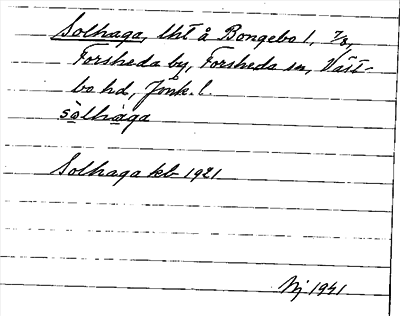 Solhaga, lht å Bongebo 1, 7/8,
Forsheda by, Forsheda sn, Väst-
bo hd, Jönk. l.
sòlhàga
Solhaga kb 1921
Nj 1941